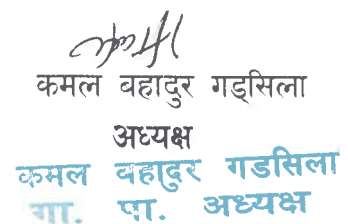 कमल बहादुर गड्सिला
अध्यक्ष
कमल बहादुर गडसिला
गा. पा. अध्यक्ष